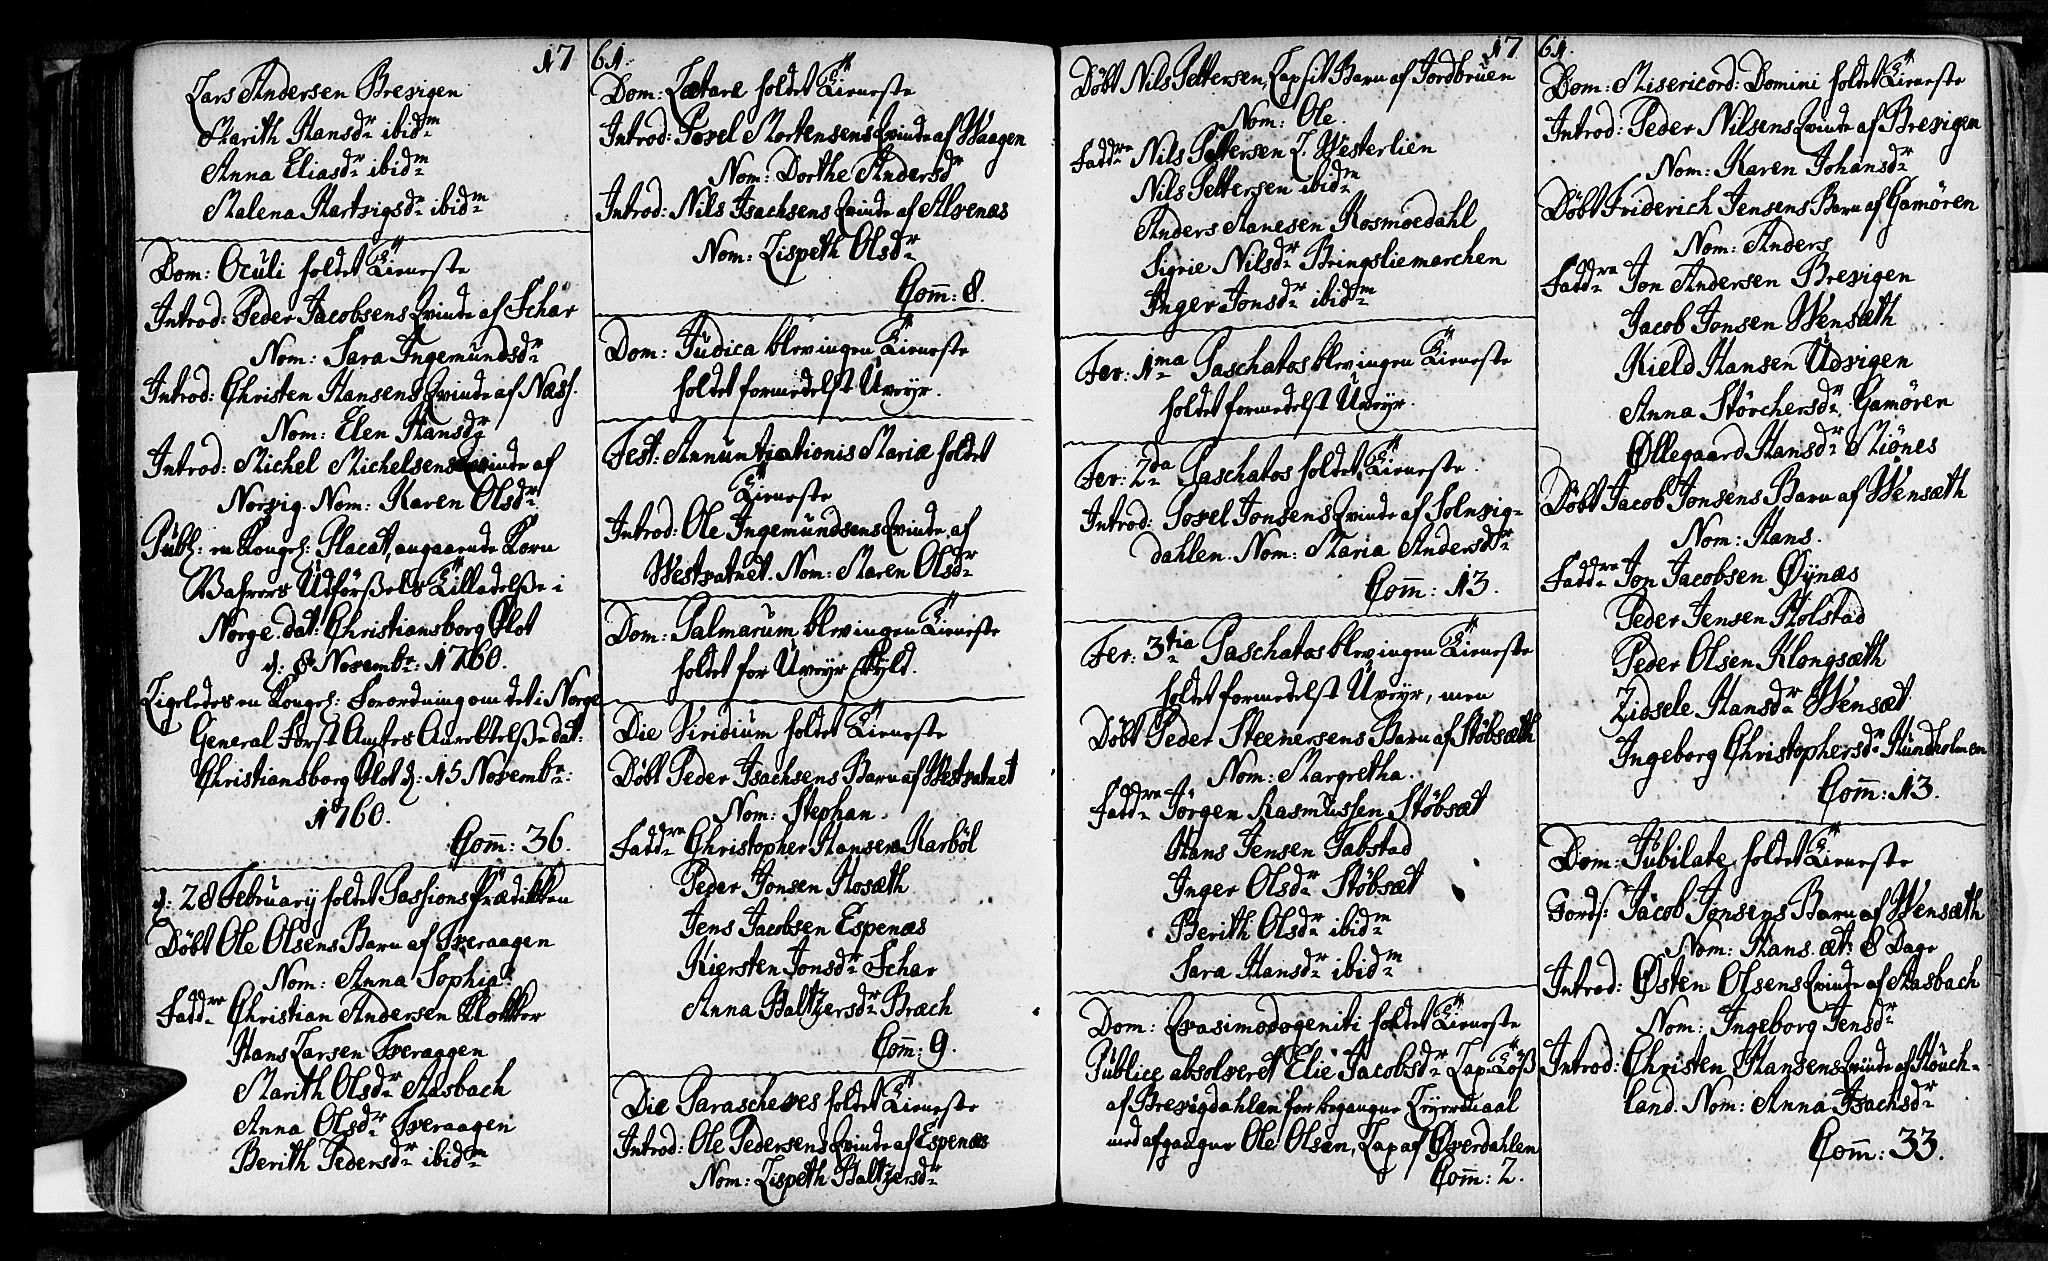 17 61.
Lars Andersen Brevigen
Marith Hansdr ibidm
Anna Eliasdr ibidm
Malena Hartvigsdr ibidm
Dom: Oculi holdet Tieneste
Introd: Peder Jacobsens Qvinde af Schar
Nom: Sara Ingemundsdr
Introd: Christen Hansens Qvinde af Næss.
Nom: Elen Hansdr
Introd: Michel Michelsens Qvinde af
Norvig. Nom: Karen Olsdr
Publ: en Kongel: Placat, angaaende Korn
Vahrers Udførßels Tilladelße i
Norge. dat: Christiansborg Slot
d: 8 Novembr: 1760.
Ligeledes en Kongel: Forordning om det i Norge
General Forst Amtes dat:
Christiansborg Slot d: 15 Novembr:
1760.
Com̅: 36.
d: 28 February holdet Passions Prædikken
Døbt Ole Olsens Barn af Tveraagen
Nom: Anna Sophia.
Faddre Christian Andersen Klokker
Hans Larsen Tveraagen
Marith Olsdr Aasbach
Anna Olsdr Tveraagen
Berith Pedersdr ibidm
Dom: Lætare holdet Tieneste
Introd: Povel Mortensens Qvinde af Waagen
Nom: Dorthe Andersdr
Introd: Nils Isachsens Qvinde af Alvenæs
Nom: Lispeth Olsdr
Com̅: 8.
Dom: Judica blev ingen Tieneste
holdet formedelst Uveyr.
Fest: Annuntiationis Mariæ holdet
Tieneste
Introd: Ole Ingemundsens Qvinde af
Westvatnet. Nom: Maren Olsdr
Dom: Palmarum blev ingen Tieneste
holdet for Uveyr skyld.
Die Viridium holdet Tieneste
Døbt Peder Isachsens Barn af Westvatnet
Nom: Stephan.
Faddre Christopher Hansen Karbøl
Peder Jonsen Hosæth
Jens Jacobsen Espenæs
Kiersten Jonsdr Schar
Anna Baltzersdr Bræch
Com̅: 9.
Die Parasceves holdet Tieneste
Introd: Ole Pedersens Qvinde af Espenæs
Nom: Lispeth Baltzersdr
17 61.
Døbt Nils Pettersen, Lapsit Barn af Jordbruen
Nom: Ole.
Faddre Nils Pettersen L. Westerlien
Nils Pettersen ibidm
Anders Aanesen Kosmoedahl
Sigrie Nilsdr Bringsliemarchen
Inger Jonsdr ibidm
Fer: 1ma Paschatos blev ingen Tieneste
holdet formedelst Uveyr.
Fer: 2da Paschatos holdet Tieneste.
Introd: Povel Jonsens Qvinde af Solvig-
dahlen. Nom: Maria Andersdr
Com̅: 13.
Fer: 3tia Paschatos blev ingen Tieneste
holdet formedelst Uveyr, men
Døbt Peder Steenersens Barn af Støbsæth
Nom: Margretha.
Faddre Jørgen Rasmussen Støbsæt
Hans Jensen Tabstad
Inger Olsdr Støbsæt
Berith Olsdr ibidm
Sara Hansdr ibidm
Dom: Qvasimodogeniti holdet Tieneste
Publice absolveret Elie Jacobsdr Lap
af Brevigdahlen for begangne Leyermaal
med afgangne Ole Olsen, Lap af Øverdahlen
Com̅: 2.
Dom: Misericord: Domini holdet Tieneste
Introd: Peder Nilsens Qvinde af Brevigen
Nom: Karen Johansdr
Døbt Friderich Jensens Barn af Gamøren
Nom: Anders
Faddre Jon Andersen Brevigen
Jacob Jonsen Wensæth
Kield Hansen Udvigen
Anna Størchersdr Gamøren
Øllegaard Hansdr Miønes
Døbt Jacob Jonsens Barn af Wensæth
Nom: Hans.
Faddre Jon Jacobsen Øynæs
Peder Jensen Holstad
Peder Olsen Klongsæth
Zidsele Hansdr Wensæt
Ingeborg Christophersdr Hundholmen
Com̅: 13.
Dom: Jubilate, holdet Tieneste
Jords: Jacob Jonsens Barn af Wensæth
Nom: Hans. æt: 8 Dage
Introd: Østen Olsens Qvinde af Aasbach
Nom: Ingeborg Jensdr
Introd: Christen Hansens Qvinde af Houch-
land. Nom: Anna Isachsdr
Com̅: 33.